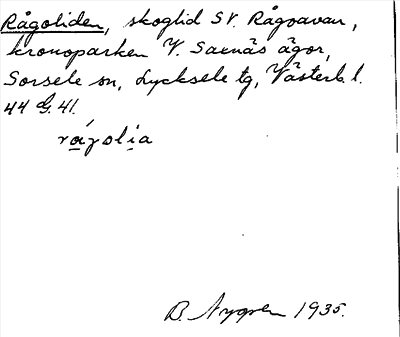 Rågoliden, skoglid SV. Rågoavan,
kronoparken V. Saxnäs ägor,
Sorsele sn, Lycksele tg, Västerb. l.
44 G. 41.
rågolia
B. Nygren 1935.